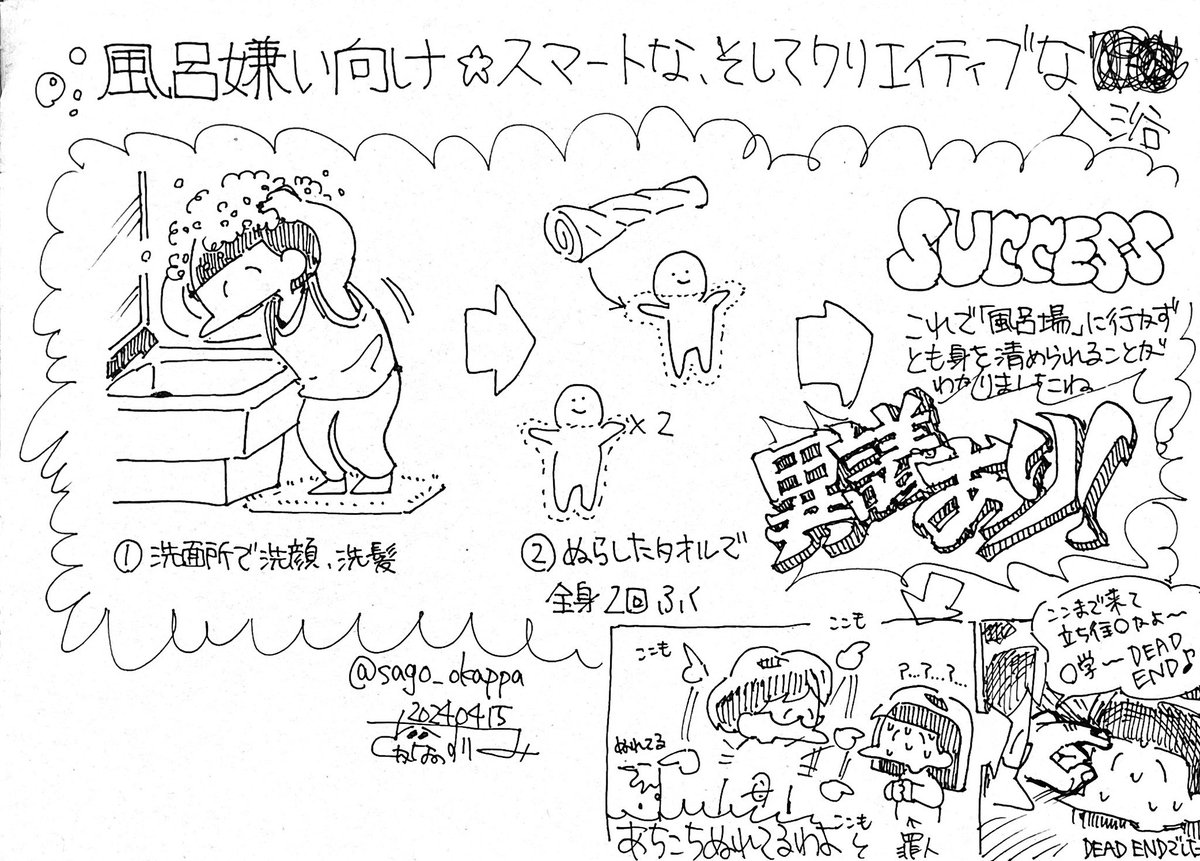 風呂嫌い向け☆スマートな、そしてクリエイティブな
入浴
① 洗面所で洗顔、洗髪
×2
② ぬらしたタオルで
全身2回ふく
SUCCESS
これで「風呂場」に行かず
とも身を清められることが
わかりましたね
異議あり!
ここも
ここも
ぬれてる
母
あちこちぬれてるわよ
ここも
?…?…?…
↑
罪人
ここまで来て
立ち往〇なよ〜
〇学〜DEAD
END♪
DEAD ENDでした
@sago_okappa
20240415